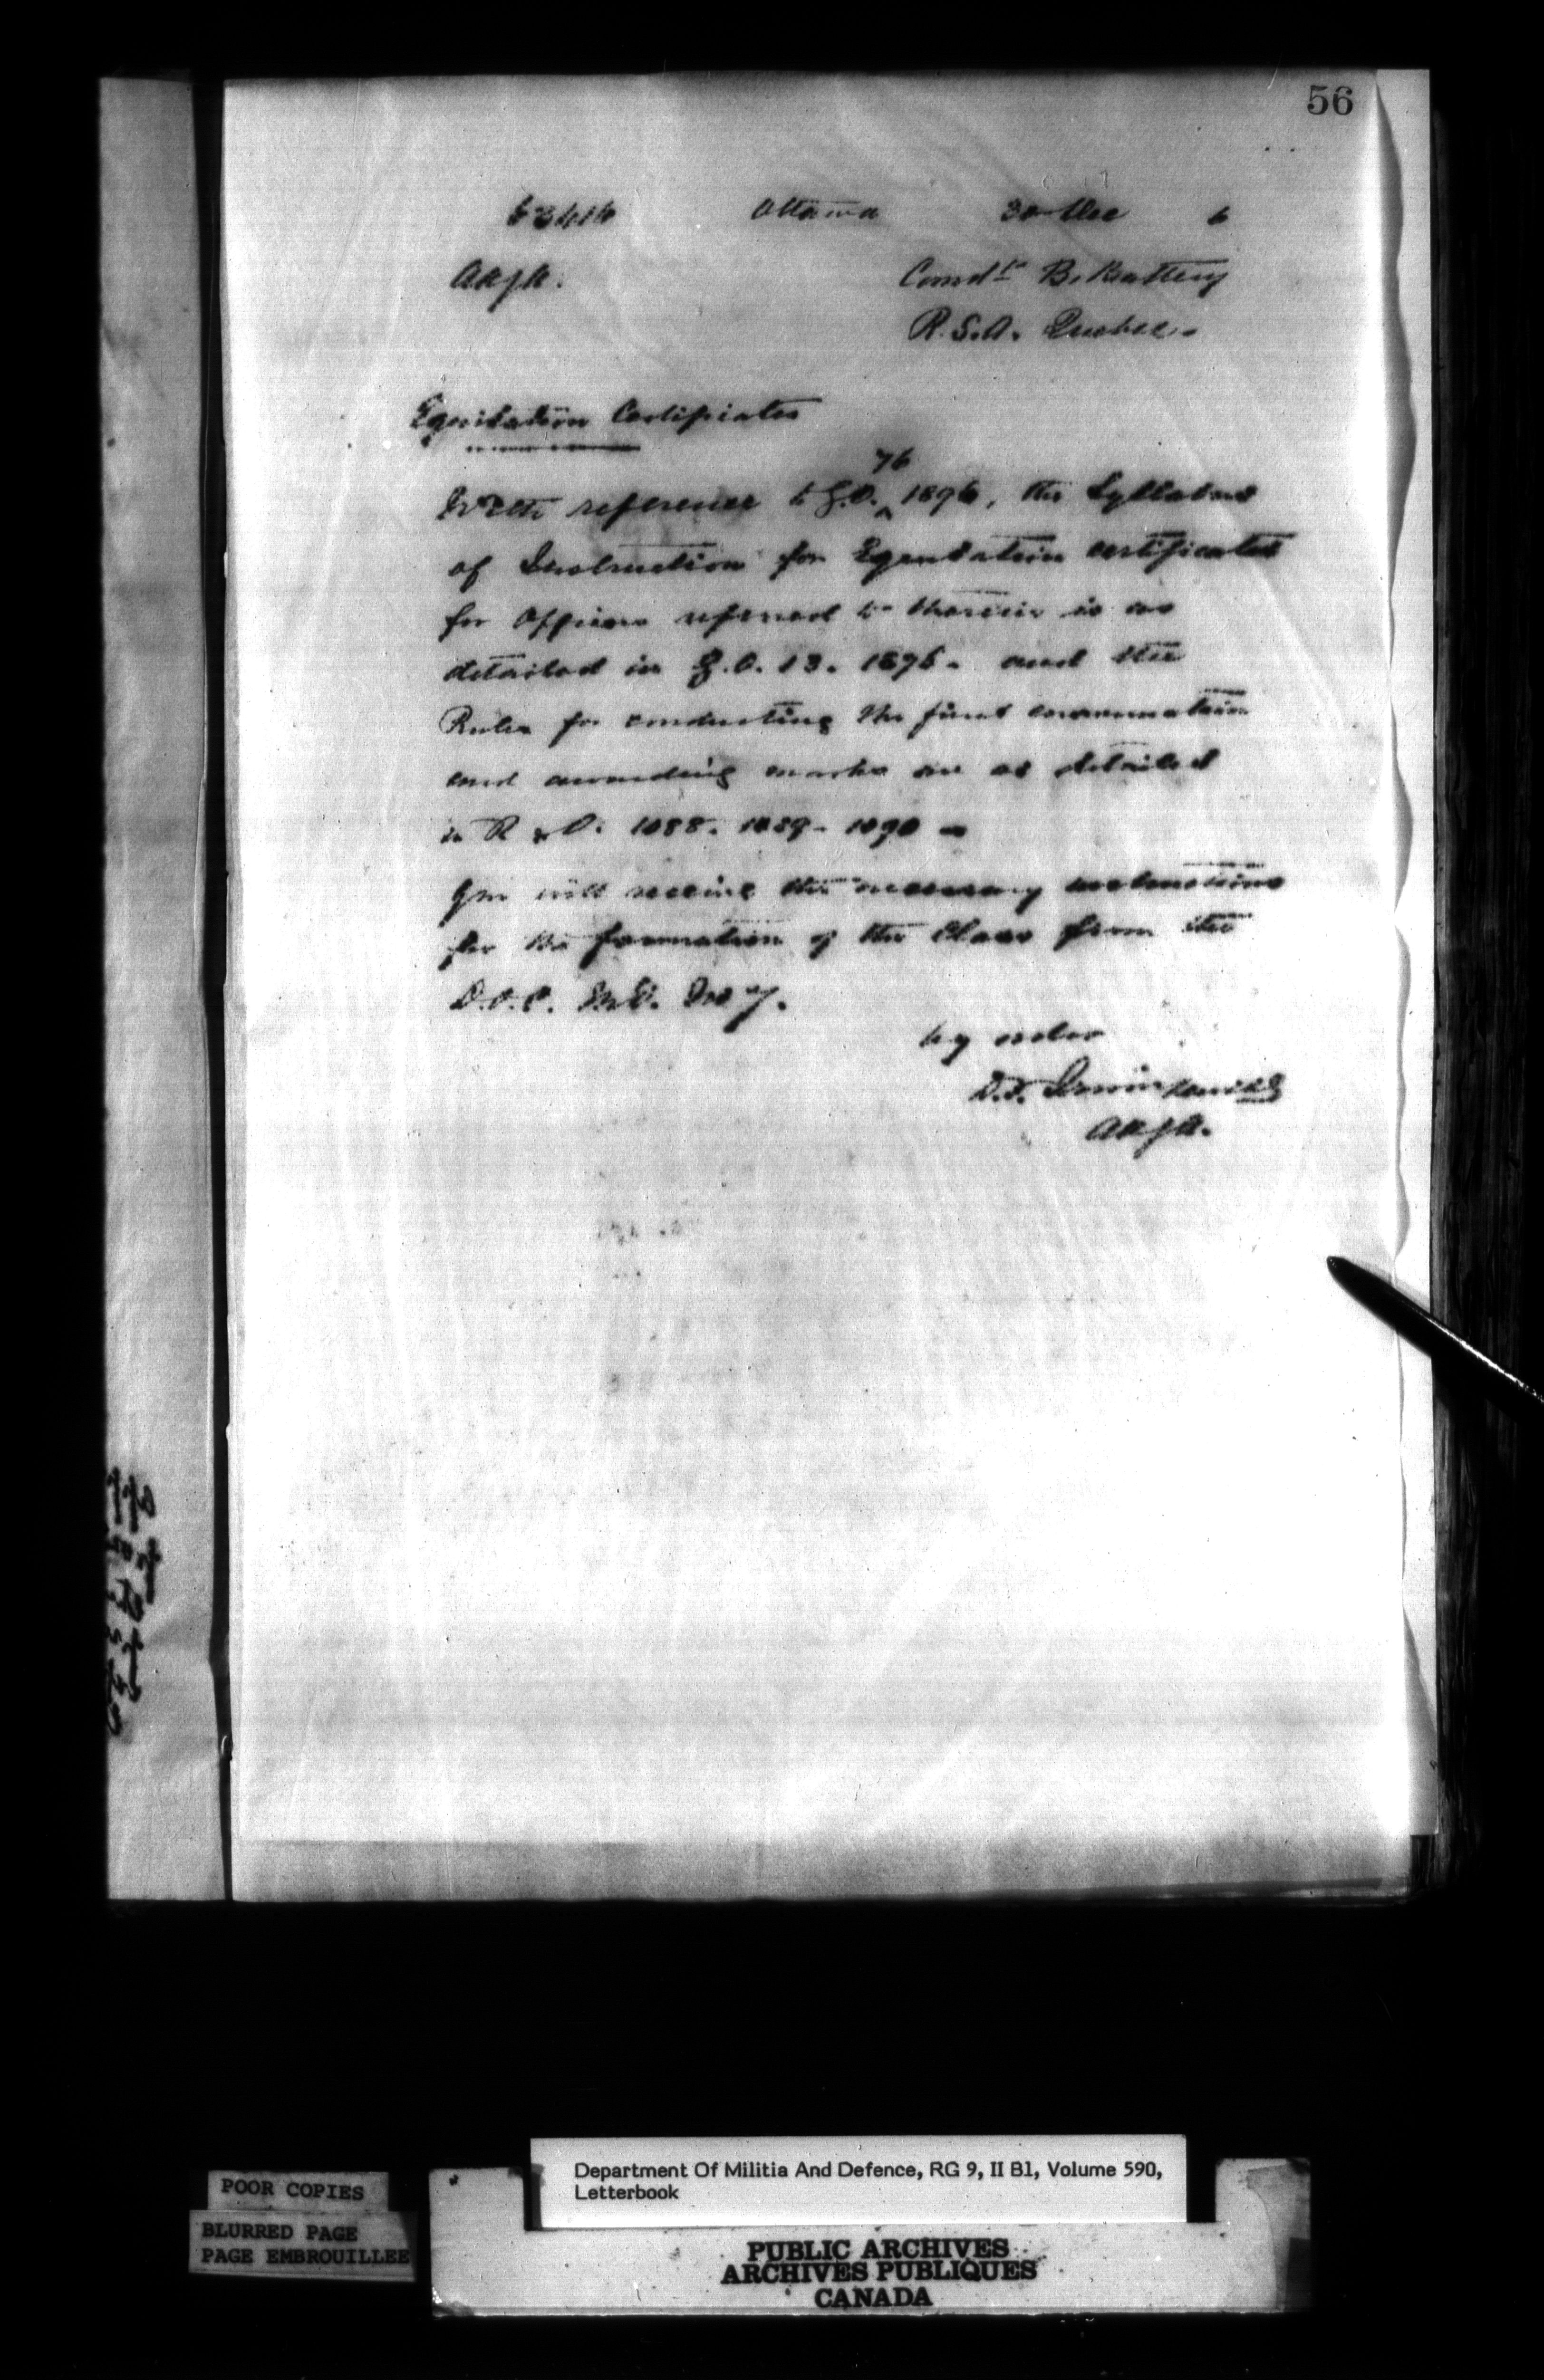 56
Ottawa 30 Dec 6
Comdt B. Battery
R.S.A. Quebec.
Equitation Certificates
76
With reference to G.O. ^ 1896, the Syllabus
of Instruction for Equitation certificates
for Officers referred to therein is as
detailed in G.O. 13. 1896. and the
Rules for conducting the final examination
and awarding marks are as detailed
in R & O. 1088. 1089. 1090 -
You will receive the necessary instructions
for the formation of the Class from the
D.O.C. M.D. No 7.
by order
D.T. Irwin
POOR COPIES
BLURRED PAGE
PAGE EMBROUILLEE
Department Of Militia And Defence, RG 9, II B1, Volume 590,
Letterbook
PUBLIC ARCHIVES
ARCHIVES PUBLIQUES
CANADA